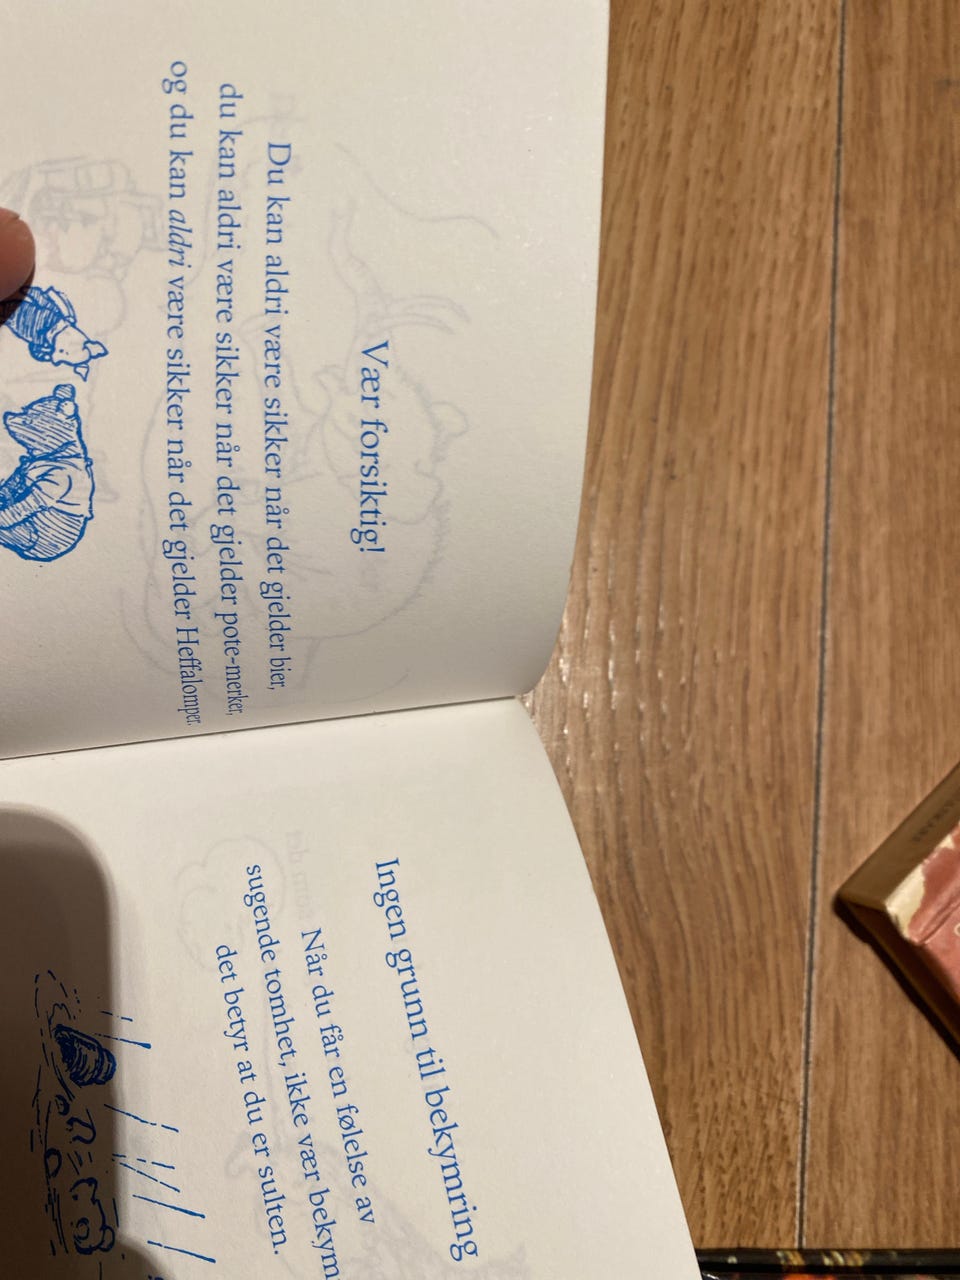 Vær forsiktig!
Du kan aldri være sikker når det gjelder bier,
du kan aldri være sikker når det gjelder pote-merker,
og du kan aldri være sikker når det gjelder Heffalomper.
Ingen grunn til bekymring
Når du får en følelse av
sugende tomhet, ikke vær bekym
det betyr at du er sulten.